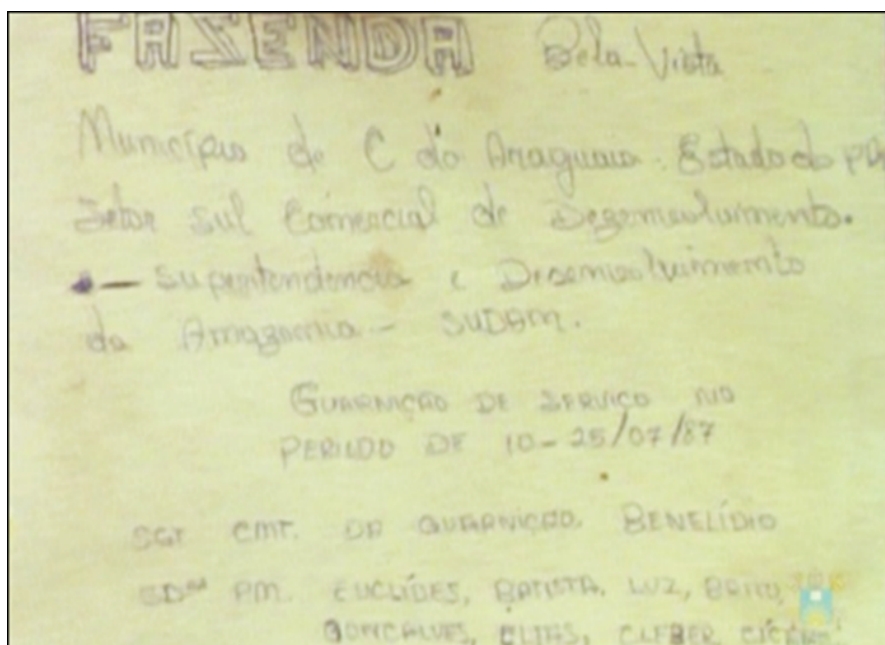 FAZENDA Bela Vista
Município de C do Araguaia. Estado do PA
Setor sul Comercial de Desenvolvimento.
- Supentendencia e Desenvolvimento
da Amazonia - SUDAM.
GUARNIÇÃO DE SERVIÇO NO
PERIODO DE 10-25/07/87
SGT CMT. DA GUARNIÇÃO. BENELÍDIO
SDos PM. EUCLÍDES, BATISTA, LUZ, BRITO,
GONÇALVES, ELIAS, CLEBER, CÍCERO